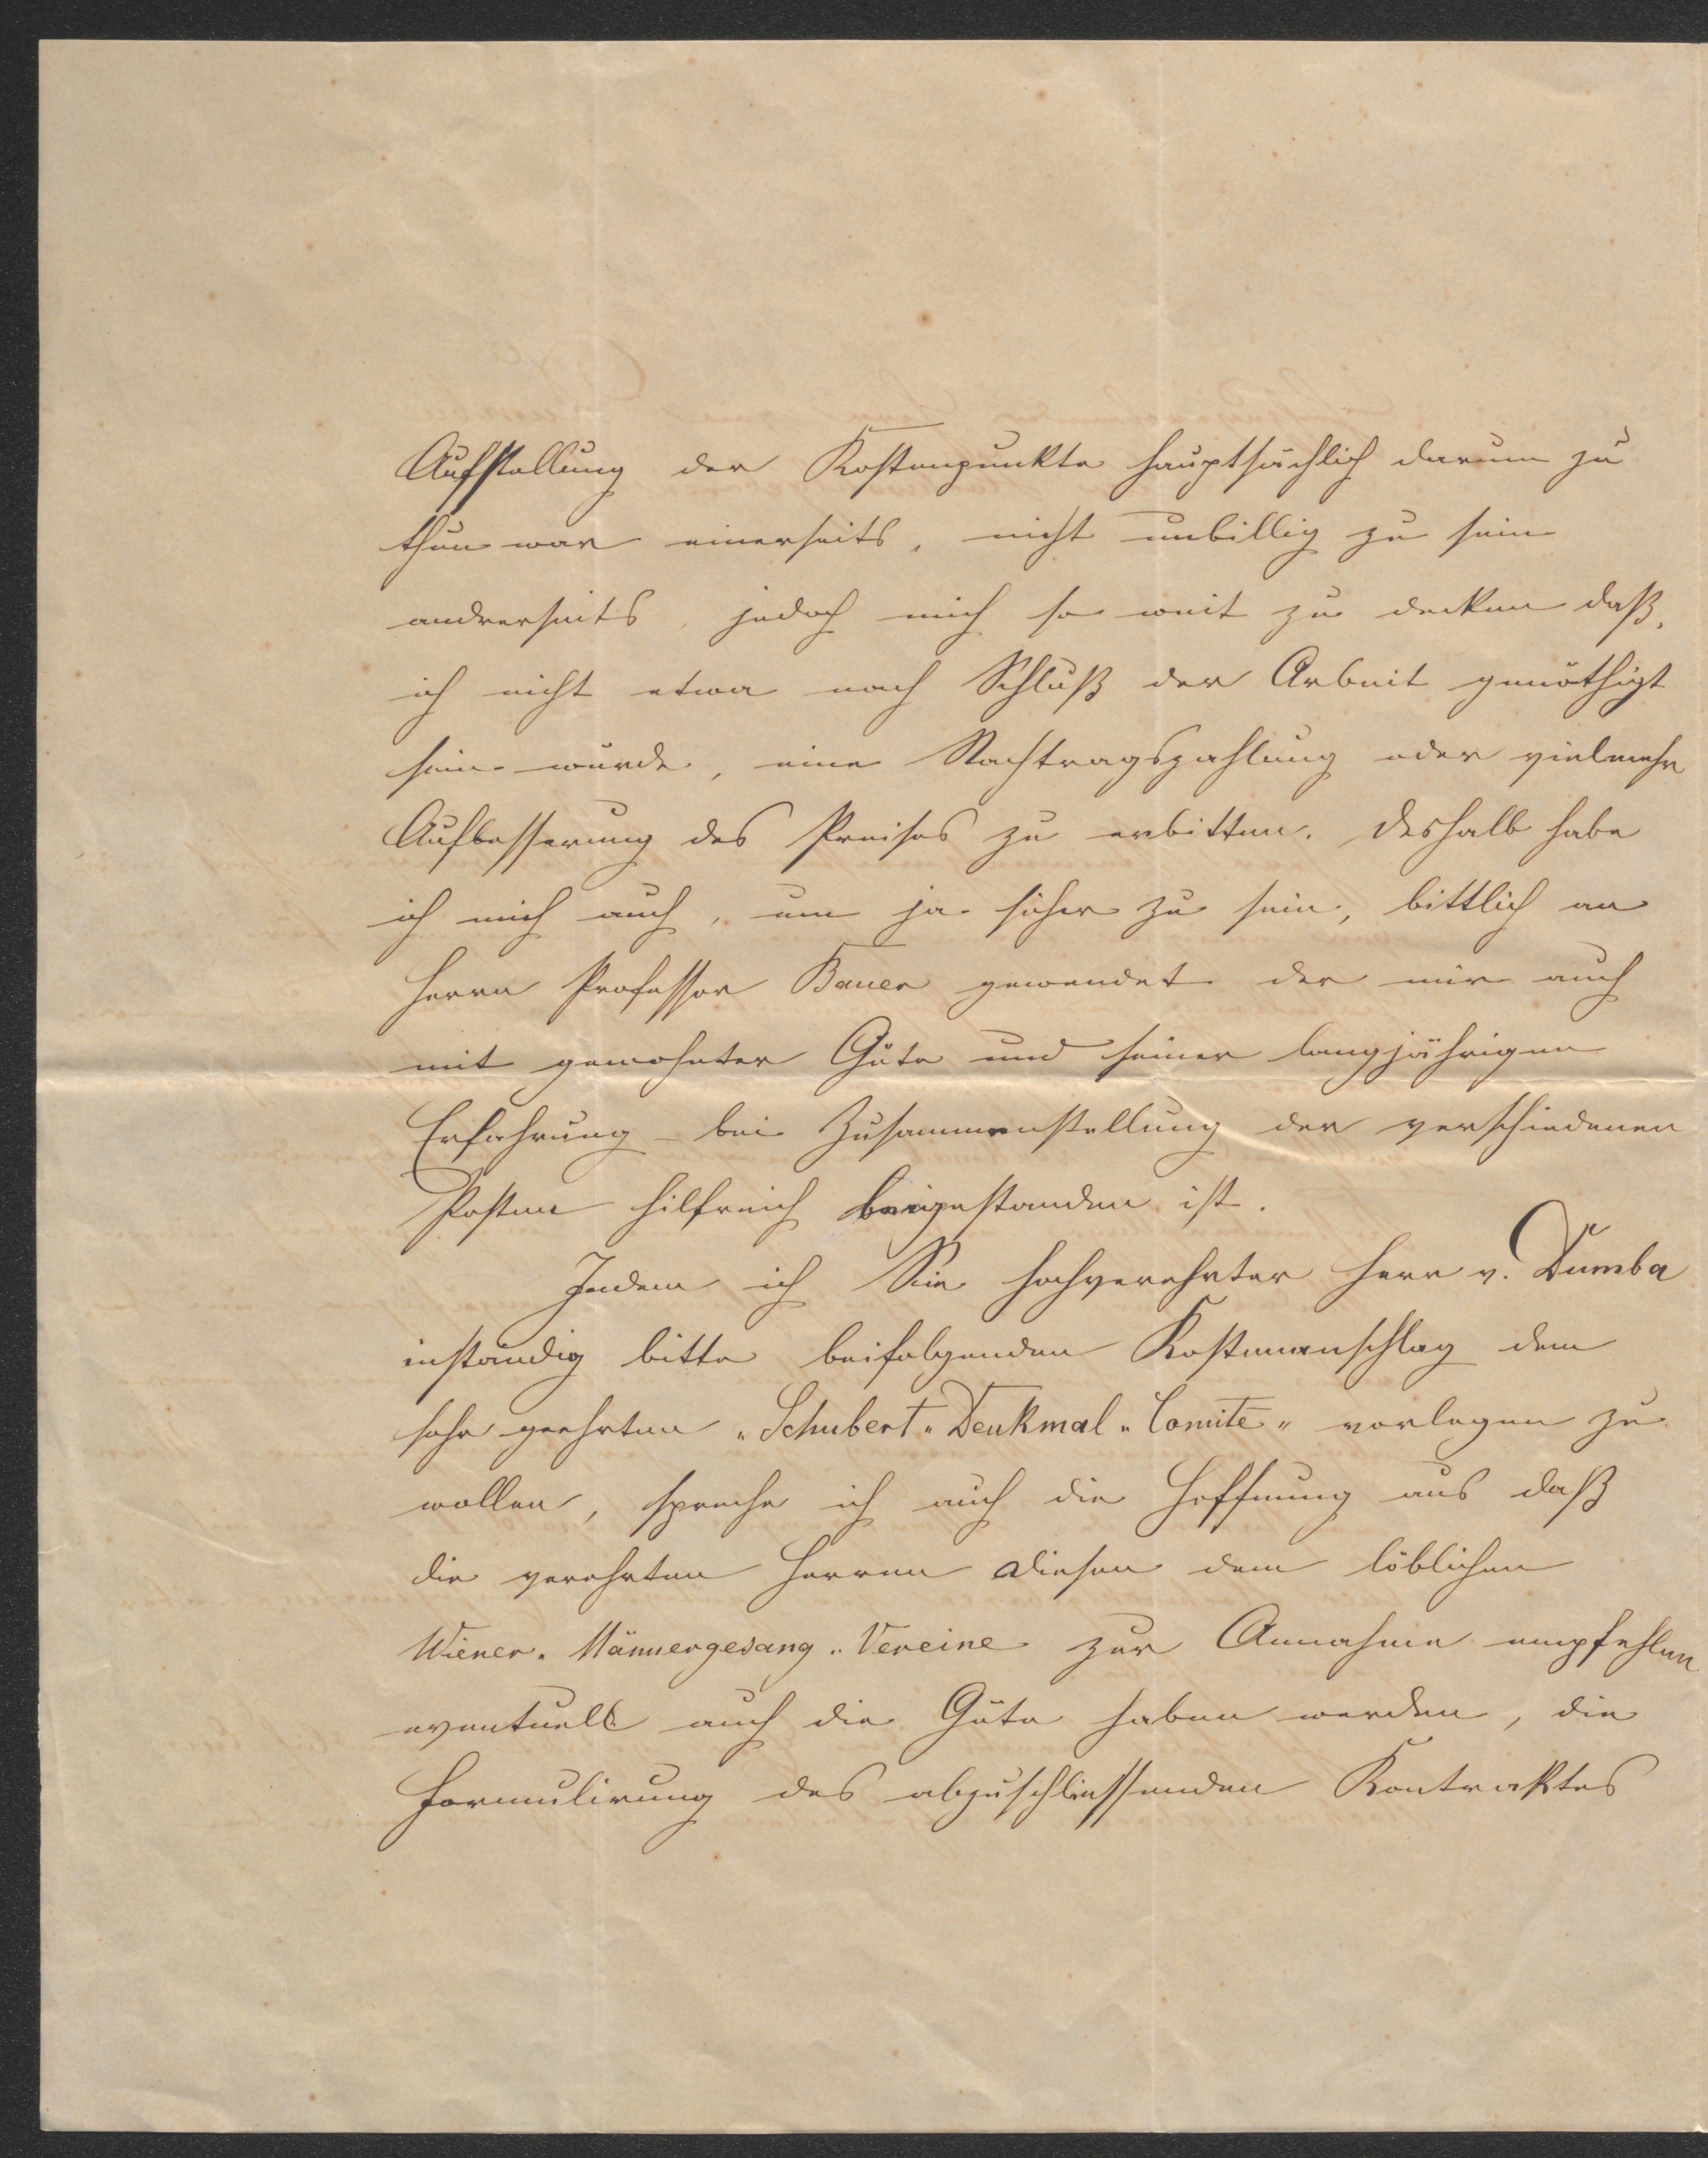 Aufstellung der Kostenpunkte hauptsächlich darum zu
thun war einerseits, nicht unbillig zu sein
andrerseits, jedoch mich so weit zu decken daß,
ich nicht etwa nach Schluß der Arbeit genöthigt
sein würde, eine Nachtragszahlung oder vielmehr
Aufbesserung des Preises zu erbitten. Deshalb habe
ich mich auch, um ja sicher zu sein, bittlich an
Herrn Professor Bauer gewendet der mir auch
mit gewohnter Güte und seiner langjährigen
Erfahrung bei Zusammenstellung der verschiedenen
Posten hilfreich beigestanden ist.
Indem ich Sie hochverehrter Herr v. Dumba
inständig bitte beifolgenden Kostenanschlag dem
sehr geehrten „Schubert-Denkmal-Comite" vorlegen zu
wollen, spreche ich auch die Hoffnung aus daß
die verehrten Herren diesen dem löblichen
Wiener-Männergesang-Vereine zur Annahme empfehlen
eventuell auch die Güte haben werden, die
Formulirung des abzuschliessenden Kontraktes